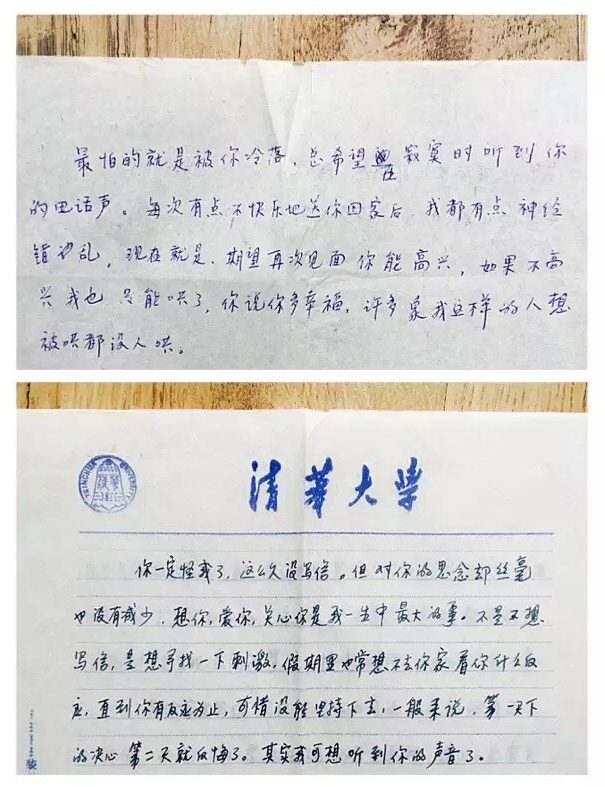 最怕的就是被你冷落，总希望在寂寞时听到你
的电话声。每次有点不快乐地送你回家后，我都有点神经
错乱，现在就是．期望再次见面你能高兴，如果不高
兴我也只能哄了，你说你多幸福，许多象我这样的人想
被哄都没人哄。
TSINGHUA UNIVERSITY
清华大学
你一定怪我了，这么久没写信。但对你的思念却丝毫
也没有减少．想你，爱你，关心你是我一生中最大的事。不是不想
写信，是想寻找一下刺激，假期里也常想不去你家看你什么反
应，直到你有反应为止，可惜没能坚持下去，一般来说，第一天下
的决心第二天就反悔了。其实我可想听到你的声音了。